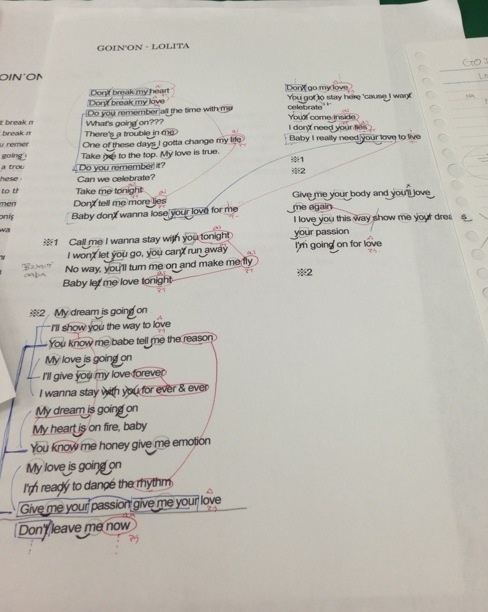 GOIN'ON - LOLITA
Don't break my heart
Don't break my love
Do you remember all the time with me
What's going on???
There's a trouble in me
One of these days I gotta change my life
Take to the top. My love is true.
Do you remember it?
Can we celebrate?
Take me tonight
Don't tell me more lies
Baby don't wanna lose your love for me
※1 Call me I wanna stay with you tonight
I won't let you go, you can't run away
No way, you'll turn me on and make me fly
Baby let me love tonight
※2 My dream is going on
I'll show you the way to love
You know me babe tell me the reason
My love is going on
I'll give you my love forever
I wanna stay with you for ever & ever
My dream is going on
My heart is on fire, baby
You know me honey give me emotion
My love is going on
I'm ready to dance the rhythm
Give me your passion give me your love
Don't leave me now
Don't go my love
You got to stay here 'cause I want
celebrate
You'll come inside
I don't need your lies
Baby I really need your love to live
※1
※2
Give me your body and you'll love
me again
I love you this way show me your dress
your passion
I'm going on for love
※2
OIN'ON
t break m
break m
u remem
going
a trou
hese
to th
men
onig
wa